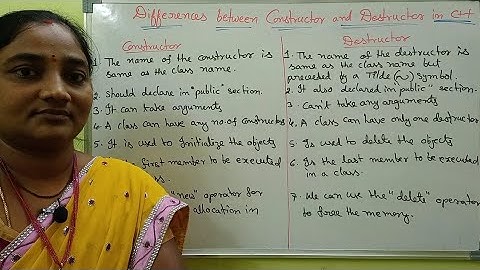 Differences between Constructor and Destructor in C++
Constructor
1. The name of the constructor is
same as the class name.
2. Should declare in "public" section.
3. It can take arguments
4. A class can have any no.of Constructors
5. It is used to Initialize the objects
first member to be executed
"new" operator for
allocation in
Destructor
1. The name of the destructor is
same as the class name but
preceded by a Tilde (~) symbol.
2. It also declared in "public" section.
3. Can't take any arguments
4. A class can have only one destructor
5. Is used to delete the objects
6. Is the last member to be executed
in a class.
7. We can use the "delete" operator
to free the memory.